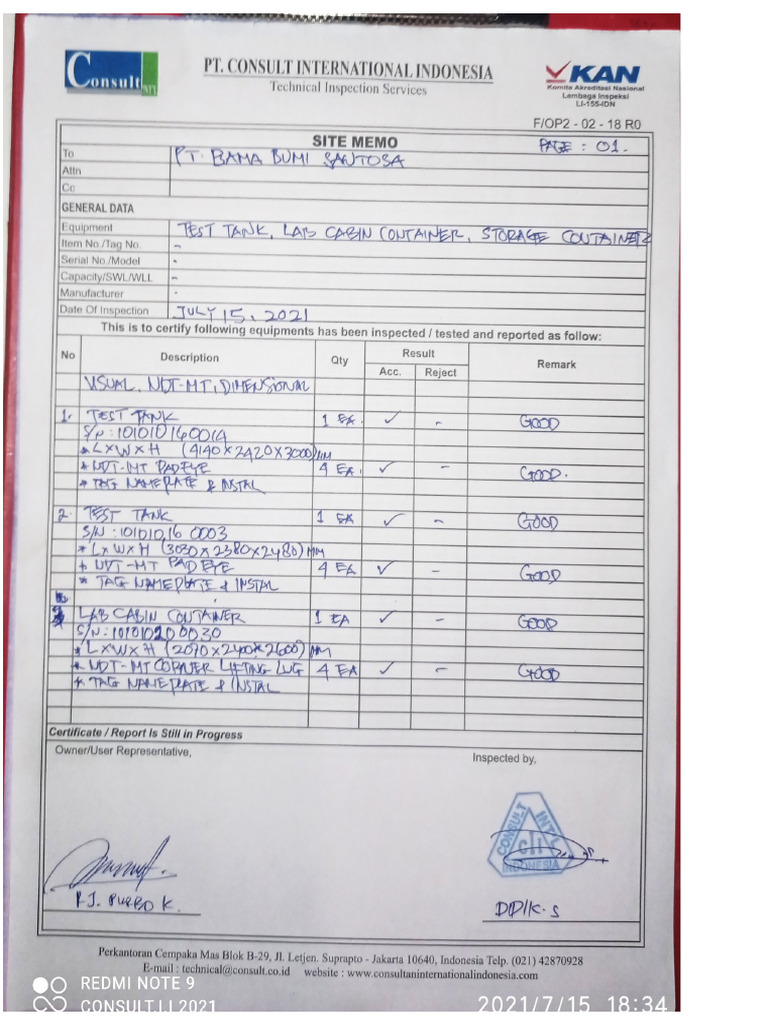 Consult INT'L
PT. CONSULT INTERNATIONAL INDONESIA
Technical Inspection Services
KAN
Komite Akreditasi Nasional
Lembaga Inspeksi
LI-155-IDN
F/OP2 - 02 - 18 R0
SITE MEMO
PAGE : 01.
To PT. BAMA BUMI SANTOSA
Attn
Cc
GENERAL DATA
Equipment TEST TANK, LAB CABIN CONTAINER, STORAGE CONTAINER
Item No./Tag No. -
Serial No./Model -
Capacity/SWL/WLL -
Manufacturer -
Date Of Inspection JULY 15, 2021
This is to certify following equipments has been inspected / tested and reported as follow:
No Description Qty Result Remark
Acc. Reject
VISUAL, NDT-MT, DIMENSIONAL
1. TEST TANK 1 EA ✓ - GOOD
S/N : 101010160014
* L×W×H (4140×2420×3000) MM
* NDT-MT PADEYE 4 EA ✓ - GOOD.
* TAG NAMEPLATE & INSTAL
2. TEST TANK 1 EA ✓ - GOOD
S/N : 10101016 0003
* L×W×H (3030×2380×2480) MM
* NDT-MT PADEYE 4 EA ✓ - GOOD
* TAG NAMEPLATE & INSTAL
3. LAB CABIN CONTAINER 1 EA ✓ - GOOD
S/N : 101010200030
* L×W×H (2090×2400×2600) MM
* NDT-MT CORNER LIFTING LUG 4 EA ✓ - GOOD
* TAG NAMEPLATE & INSTAL
Certificate / Report Is Still in Progress
Owner/User Representative,
Inspected by,
CONSULT INT'L
cii
INDONESIA
DIDIK.S
Perkantoran Cempaka Mas Blok B-29, Jl. Letjen. Suprapto - Jakarta 10640, Indonesia Telp. (021) 42870928
E-mail : technical@consult.co.id website : www.consultaninternationalindonesia.com
REDMI NOTE 9
CONSULT.I.I 2021
2021/7/15 18:34